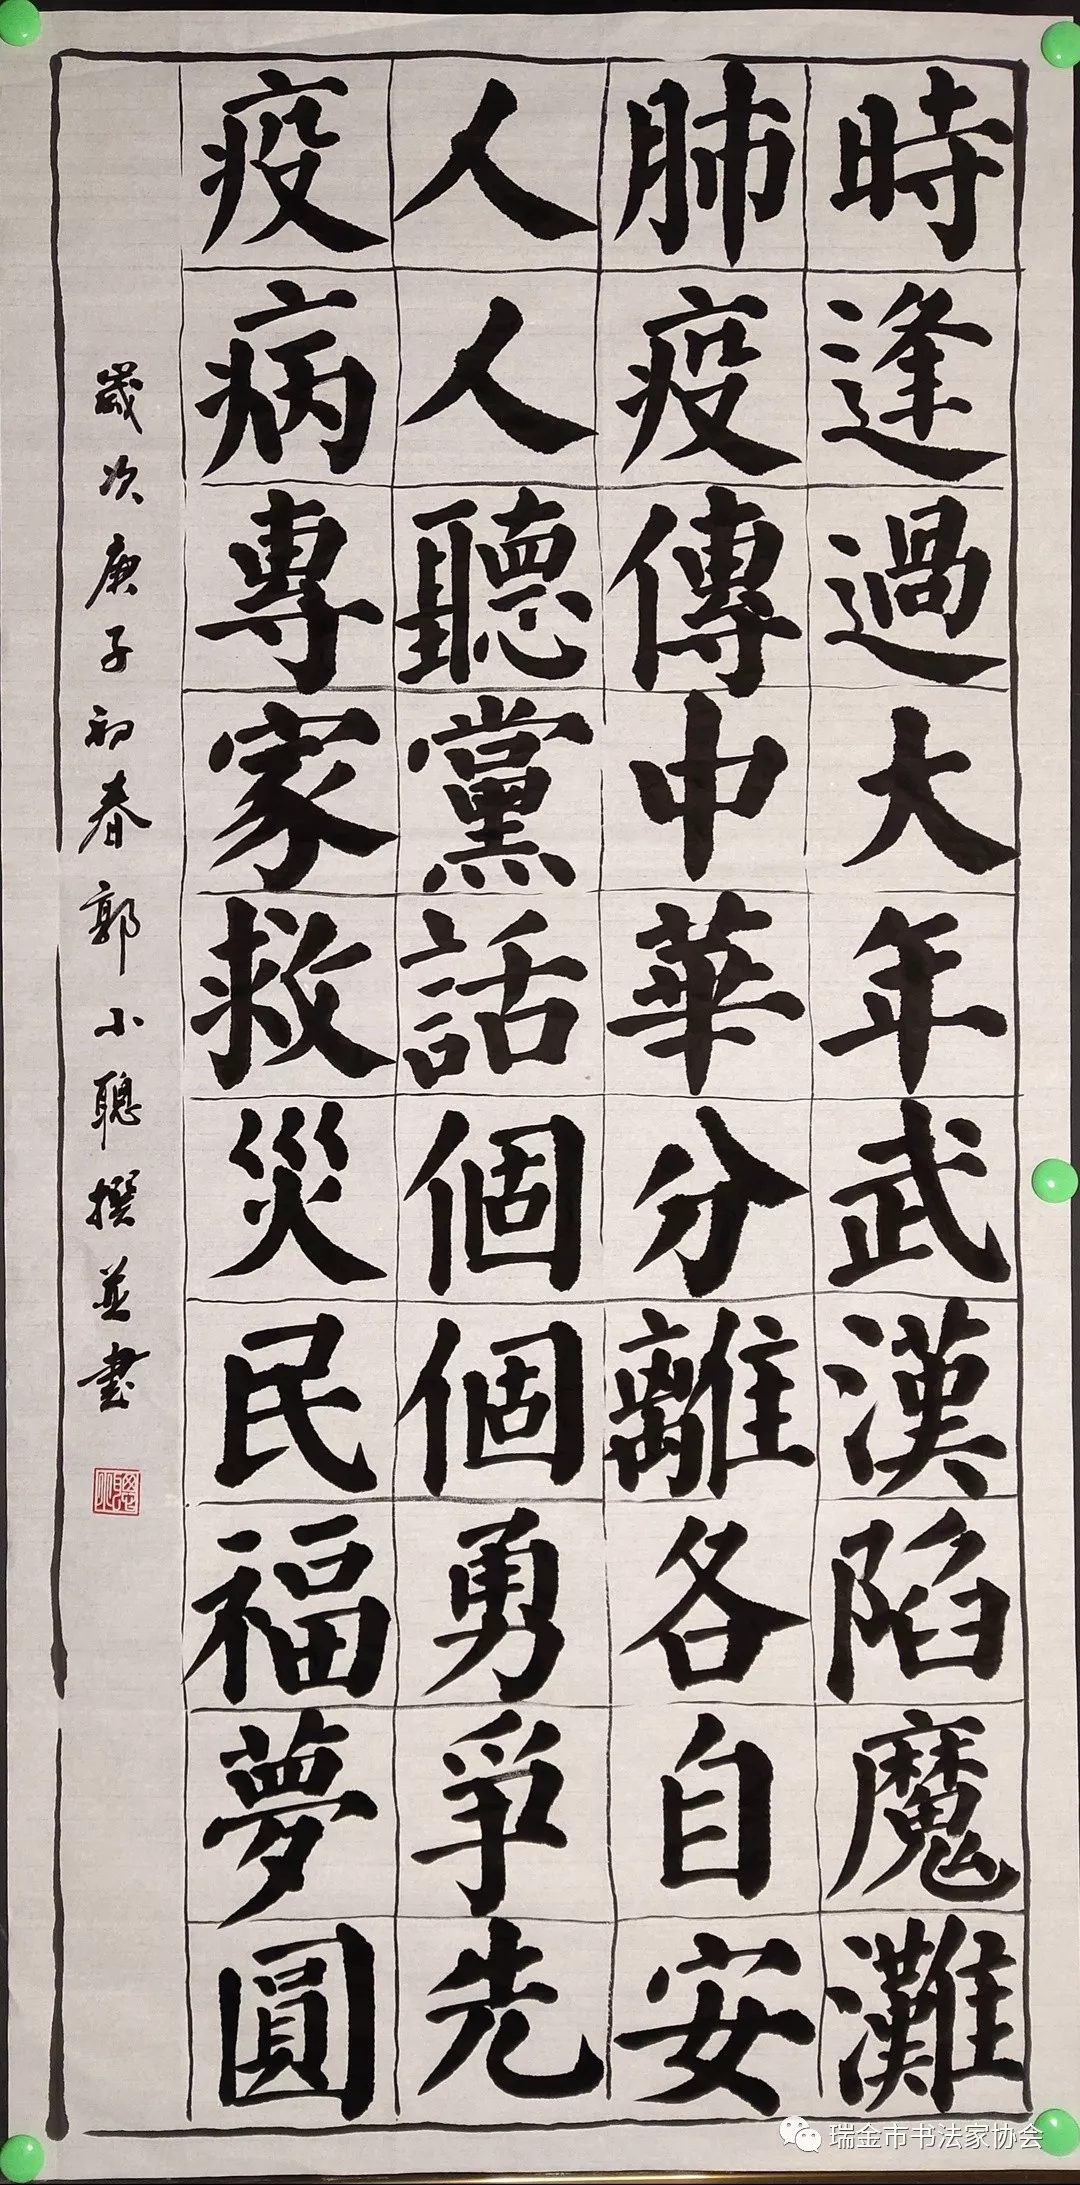 時逢過大年武漢陷魔灘
肺疫傳中華分離各自安
人人聽黨話個個勇爭先
疫病專家救災民福夢圓
歲次庚子初春郭小聰撰並書
瑞金市书法家协会